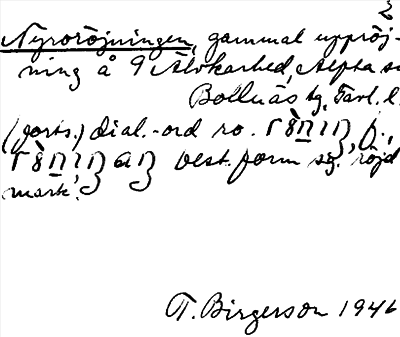 2
Nyroröjningen, gammal uppröj-
ning å 9 Älvkarhed, Alfta sn
Bollnäs tg, Gävl. l.
(forts.) dial.-ord ro.
best. form sg. 'röjd
mark'.
T. Birgerson 1946